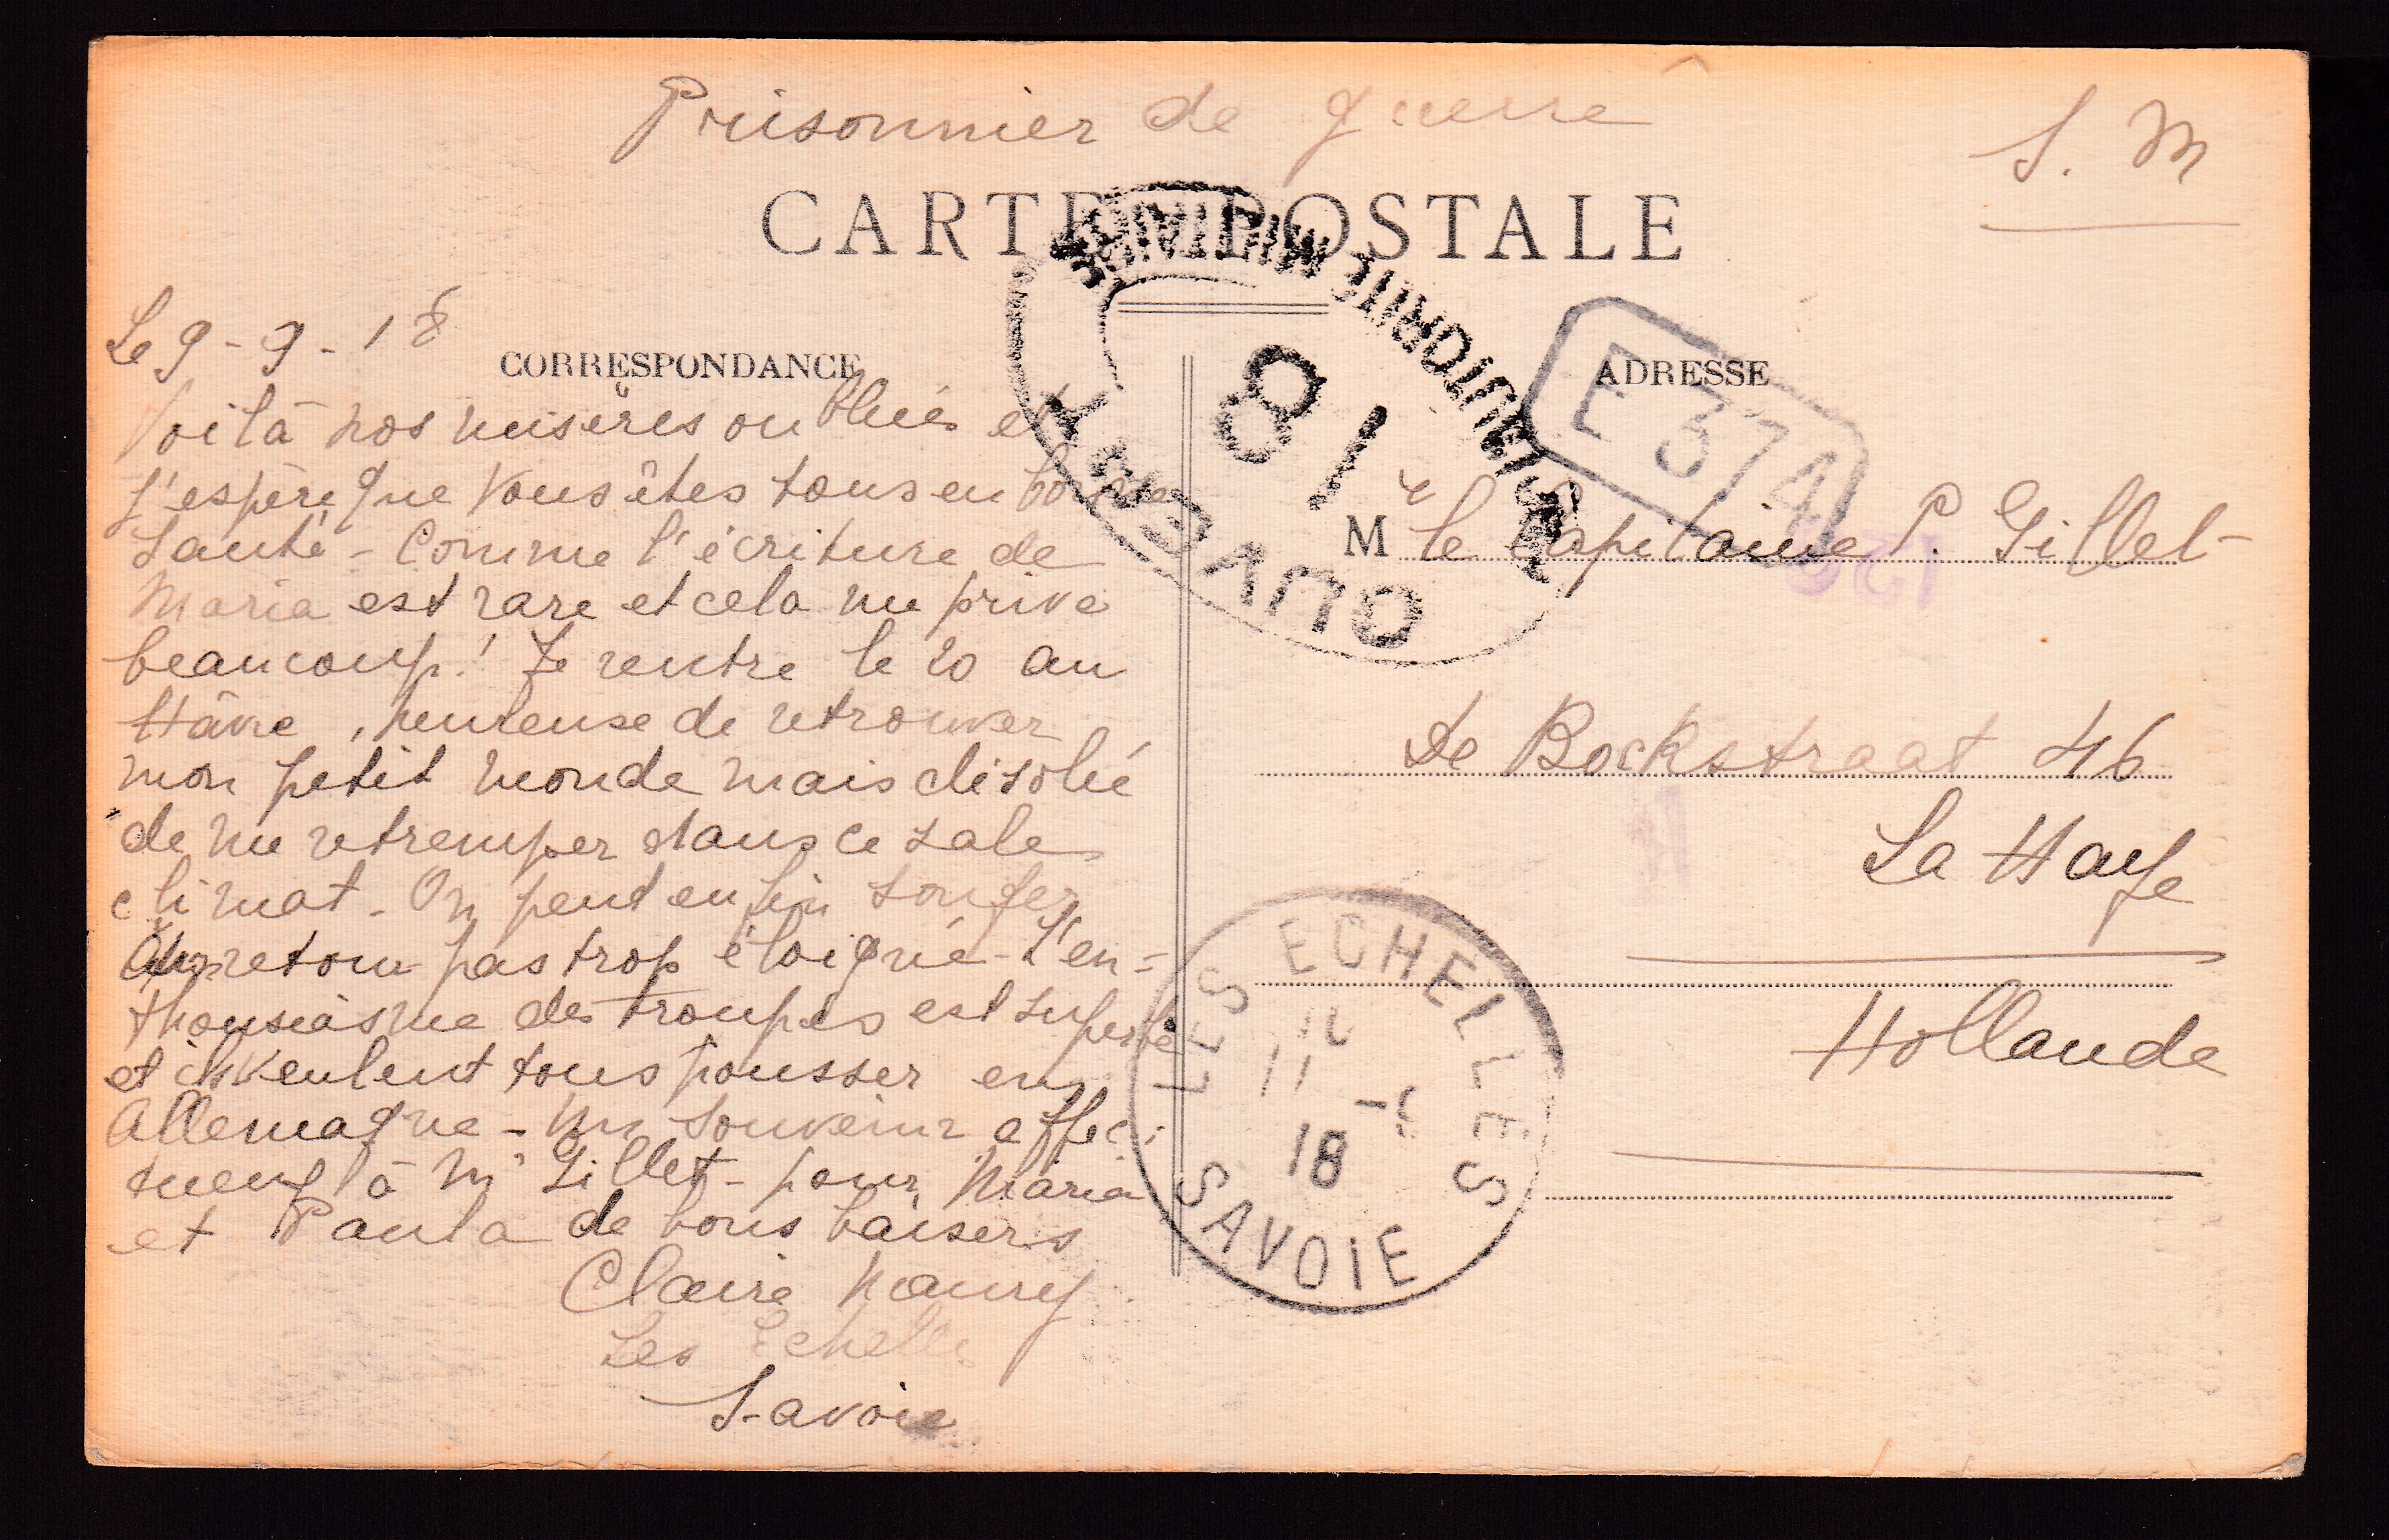 Prisonnier de guerre
S. M
CARTE POSTALE
Le 9-9-18
CORRESPONDANCE
Voilà nos misères oubliées et
j'espère que vous êtes tous en bonne
Santé - Comme l'écriture de
Maria est rare et cela me prive
beaucoup! Je rentre le 20 au
Hâvre, heureuse de retrouver
mon petit monde mais désolée
de me retremper dans ce sale
climat - On peut enfin songer
retour pas trop éloigné - L'en=
thousiasme des troupes est superbe
et ils veulent tous pousser en
Allemagne - Un souvenir affec
tueux à Mr Gillet - pour Maria
et Paula de bons baisers
Claire Maury
Les Echelles
Savoie
OUVERT
PAR L'AUTORITÉ MILITAIRE
81
ADRESSE
E 374
M le Capitaine P. Gillet-
de Bockstraat 46
La Haye
Hollande
LES ECHELLES
11 -
18
SAVOIE